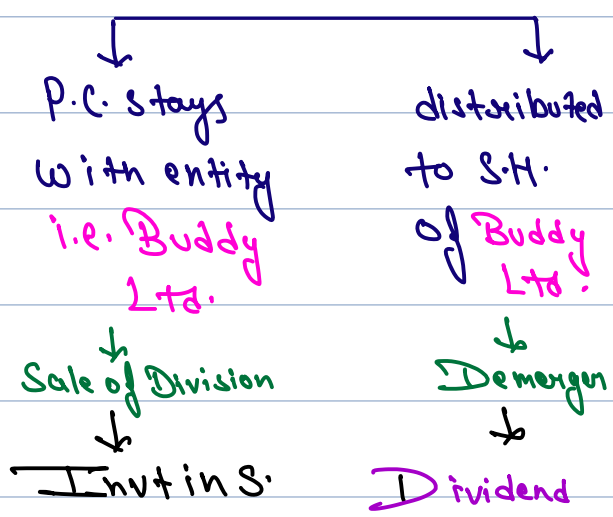 P.C. stays
with entity
i.e. Buddy
Ltd.
Sale of Division
Invt in S.
distributed
to S.H.
of Buddy
Ltd.
Demerger
Dividend